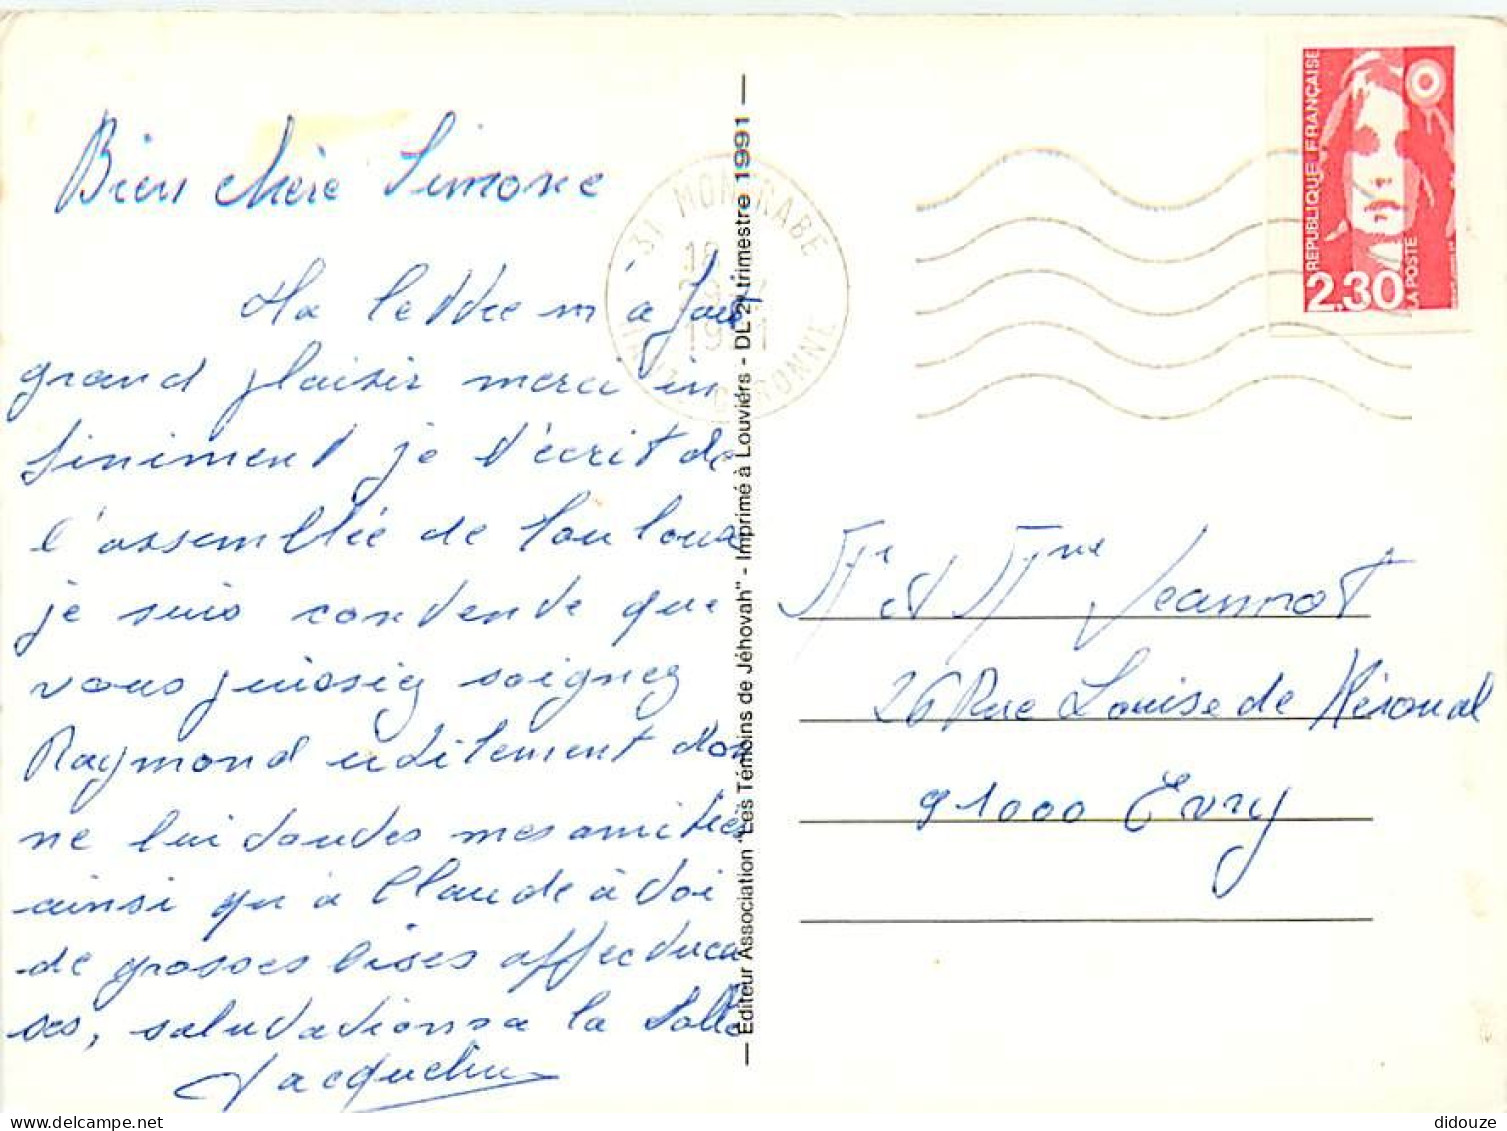 Bien chère Simone
Ta lettre m'a fait
grand plaisir merci in
finiment je t'écrit de
l'assemblée de Toulouse
je suis contente que
vous puissiez soignez
Raymond don
ne lui toutes mes amitiés
ainsi qu'a Claude à toi
de grosses bises affectueu
ses, salutations a la salle
Jacqueline
— Editeur Association "Les Témoins de Jéhovah" - Imprimé à Louviers - DL 2e trimestre 1991 —
31 MONTRABE
18
1991
HAUTE GARONNE
REPUBLIQUE FRANÇAISE
2.30
LA POSTE
Mr et Mme Jeannot
26 Rue Louise de
91000 Evry
delcampe.net
didouze